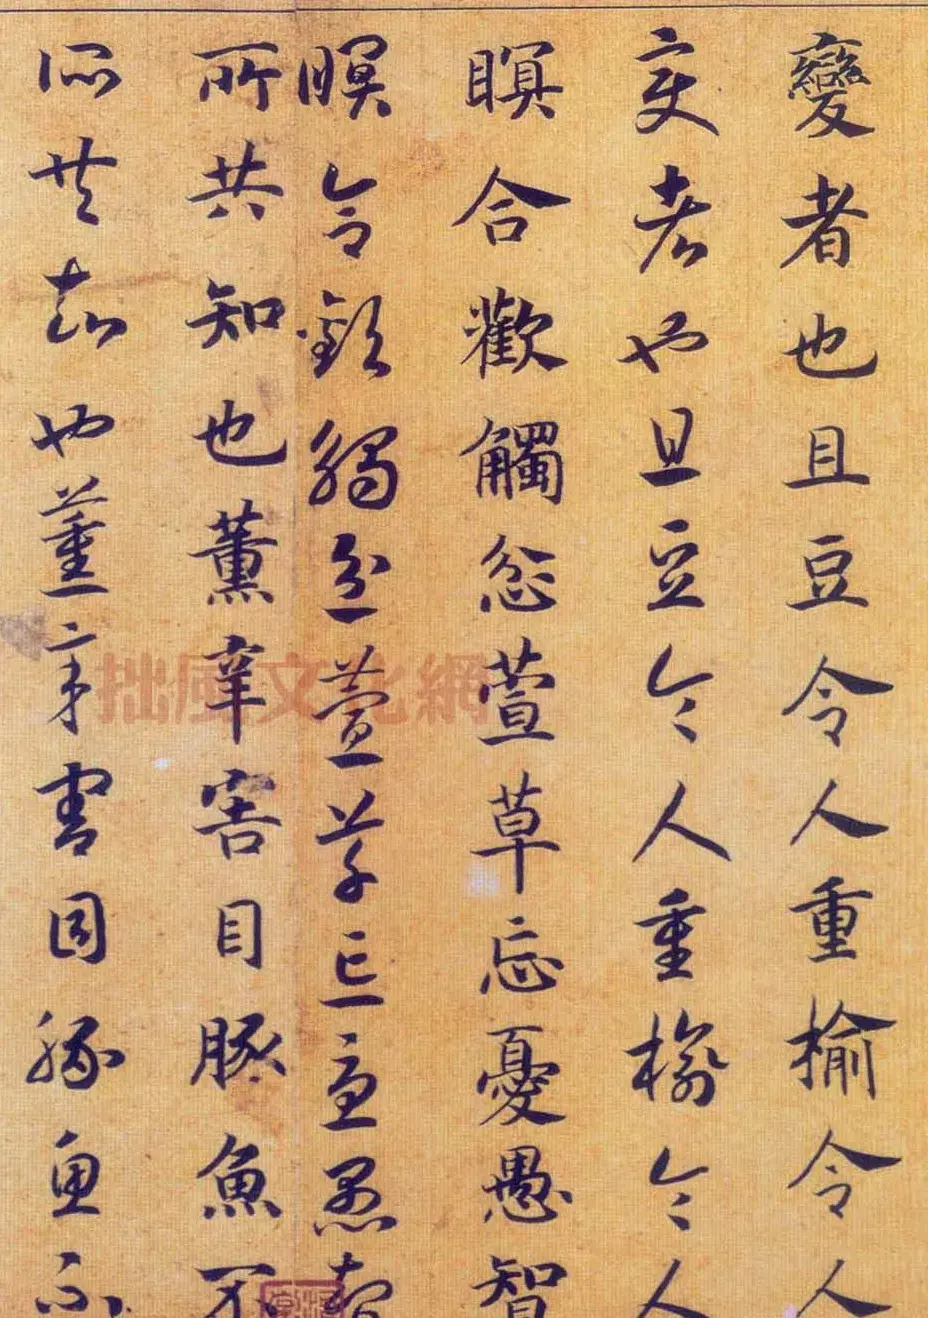 變者也且豆令人重榆令人
變者也且豆令人重榆令人
瞑合歡蠲忿萱草忘憂愚智
瞑合歡蠲忿萱草忘憂愚智
所共知也薰辛害目豚魚不
所共知也薰辛害目豚魚不
拙風文化網